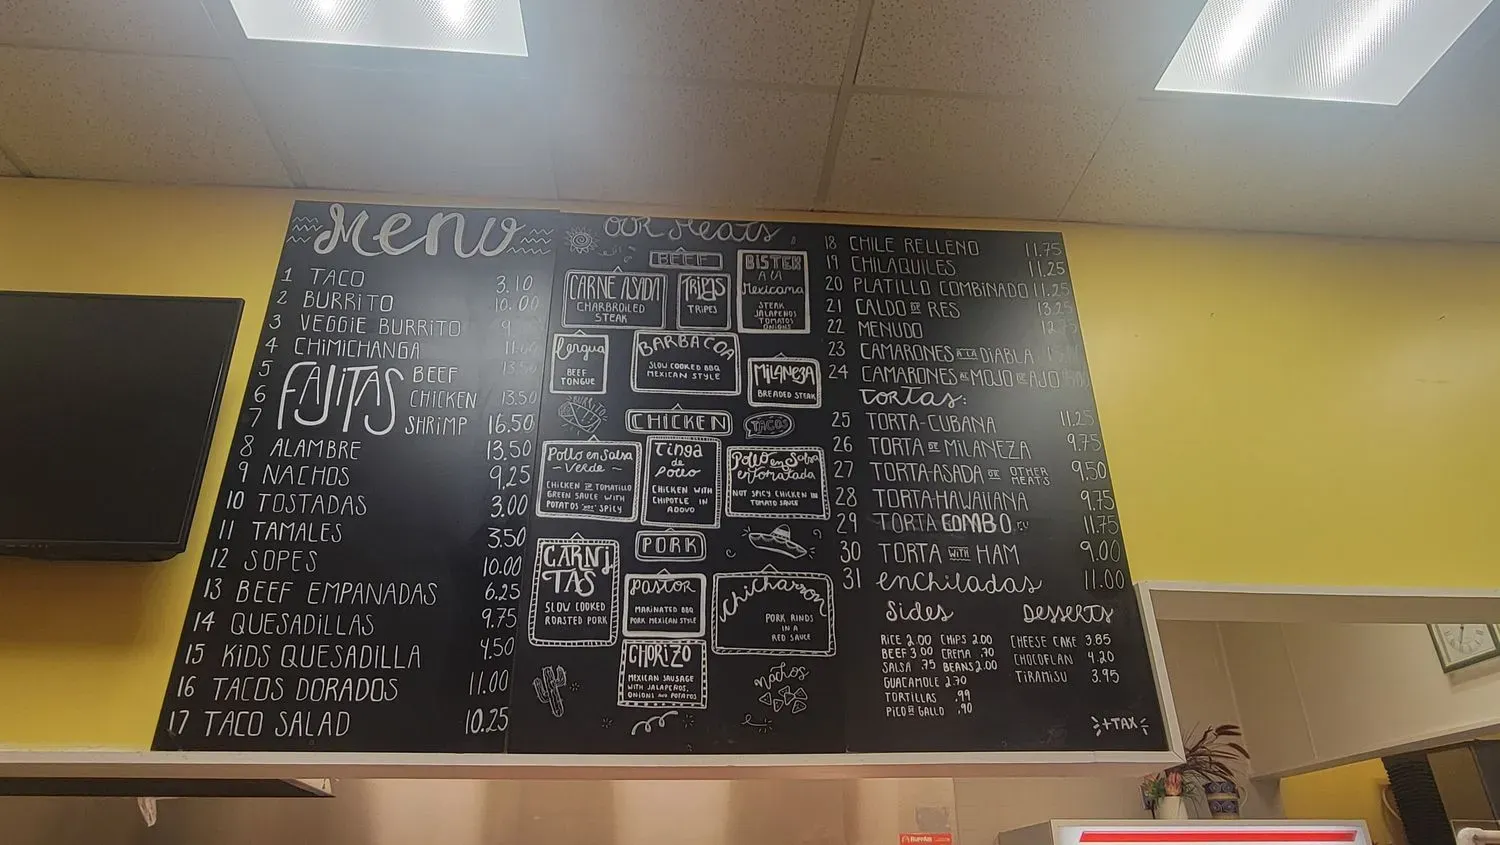 Menu
1 TACO 3.10
2 BURRITO 10.00
3 VEGGIE BURRITO 9
4 CHIMICHANGA 11.00
5 FAJITAS BEEF 13.50
6 CHICKEN 13.50
7 SHRIMP 16.50
8 ALAMBRE 13.50
9 NACHOS 9.25
10 TOSTADAS 3.00
11 TAMALES 3.50
12 SOPES 10.00
13 BEEF EMPANADAS 6.25
14 QUESADILLAS 9.75
15 KIDS QUESADILLA 4.50
16 TACOS DORADOS 11.00
17 TACO SALAD 10.25
OUR Meats
BEEF
CARNE ASADA
CHARBROILED
STEAK
TRIPAS
TRIPES
BISTEK
A LA
Mexicana
STEAK
JALAPEÑOS
TOMATOS
ONIONS
Lengua
BEEF
TONGUE
BARBACOA
SLOW COOKED BBQ
MEXICAN STYLE
MILANEZA
BREADED STEAK
BURRITO
CHICKEN
TACOS
Pollo en Salsa
~Verde~
CHICKEN IN TOMATILLO
GREEN SAUCE WITH
POTATOS "NOT" SPICY
Tinga
de
Pollo
CHICKEN WITH
CHIPOTLE IN
ADOVO
Pollo en Salsa
entomatada
NOT SPICY CHICKEN IN
TOMATO SAUCE
PORK
CARNITAS
SLOW COOKED
ROASTED PORK
PASTOR
MARINATED BBQ
PORK MEXICAN STYLE
Chicharron
PORK RINDS
IN A
RED SAUCE
CHORIZO
MEXICAN SAUSAGE
WITH JALAPEÑOS,
ONIONS AND POTATOS
nachos
18 CHILE RELLENO 11.75
19 CHILAQUILES 11.25
20 PLATILLO COMBINADO 11.25
21 CALDO DE RES 13.25
22 MENUDO
23 CAMARONES A LA DIABLA
24 CAMARONES AL MOJO DE AJO
TORTAS:
25 TORTA-CUBANA 11.25
26 TORTA DE MILANEZA 9.75
27 TORTA-ASADA OR OTHER MEATS 9.50
28 TORTA-HAWAIIANA 9.75
29 TORTA COMBO 11.75
30 TORTA WITH HAM 9.00
31 enchiladas 11.00
Sides
RICE 2.00 CHIPS 2.00
BEEF 3.00 CREMA .70
SALSA .75 BEANS 2.00
GUACAMOLE 2.70
TORTILLAS .99
PICO DE GALLO .90
Desserts
CHEESE CAKE 3.85
CHOCOFLAN 4.20
TIRAMISU 3.95
+TAX